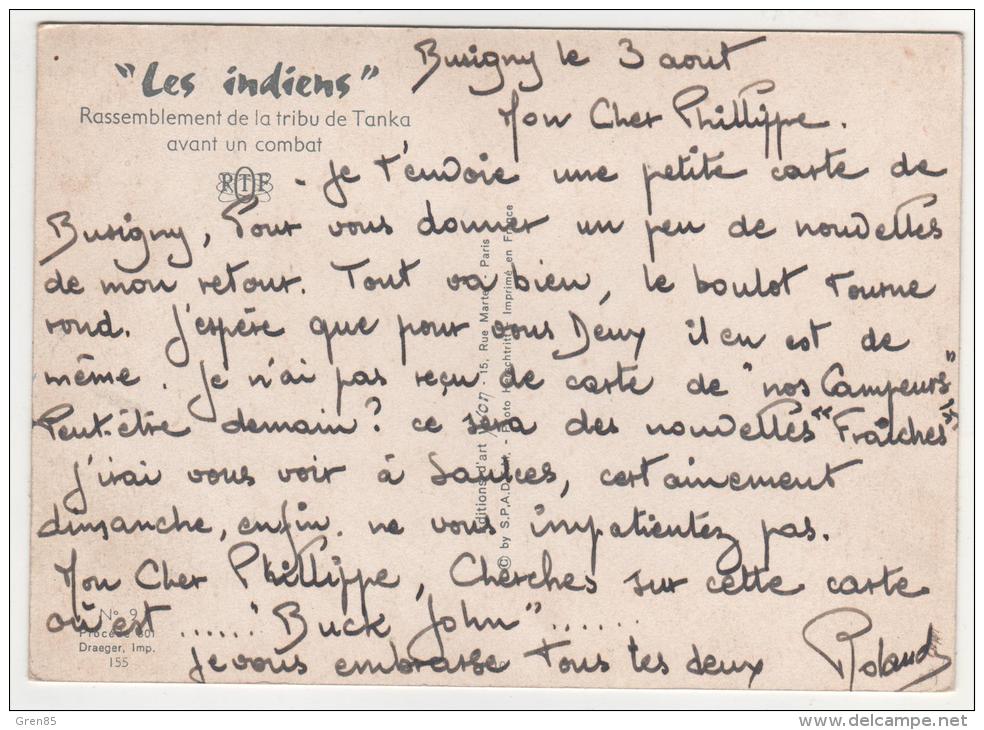 Busigny le 3 aout
"Les indiens"
Rassemblement de la tribu de Tanka
avant un combat
RTF
Mon Cher Phillippe.
- Je t'envoie une petite carte de
Busigny, Pour vous donner un peu de nouvelles
de mon retour. Tout va bien, le boulot tourne
rond. J'espère que pour vous Deux il en est de
même. Je n'ai pas reçu de carte de "nos Campeurs"
Peut-être demain? ce sera des nouvelles "Fraîches"
J'irai vous voir à Saulces, certainement
dimanche, enfin. ne vous impatientez pas.
Mon Cher Phillippe, Cherches sur cette carte
où est ...... "Buck John" ......
Je vous embrasse Tous les deux Roland
Editions d'art Yvon - 15, Rue Martel - Paris
© by S.P.A.D.E.M. - Photo Hutechtritt - Imprimé en France
N° 9
Procédé 301
Draeger, Imp.
155
Gren85
www.delcampe.net